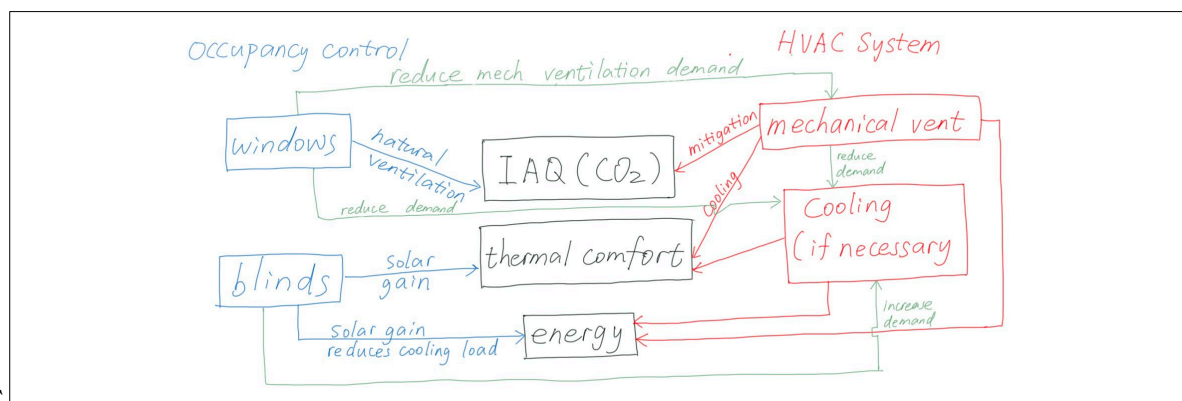 Occupancy control
HVAC System
reduce mech ventilation demand
windows
natural
ventilation
IAQ (CO₂)
mitigation
mechanical vent
reduce
demand
reduce demand
cooling
Cooling
(if necessary
thermal comfort
blinds
solar
gain
solar gain
reduces cooling load
energy
increase
demand